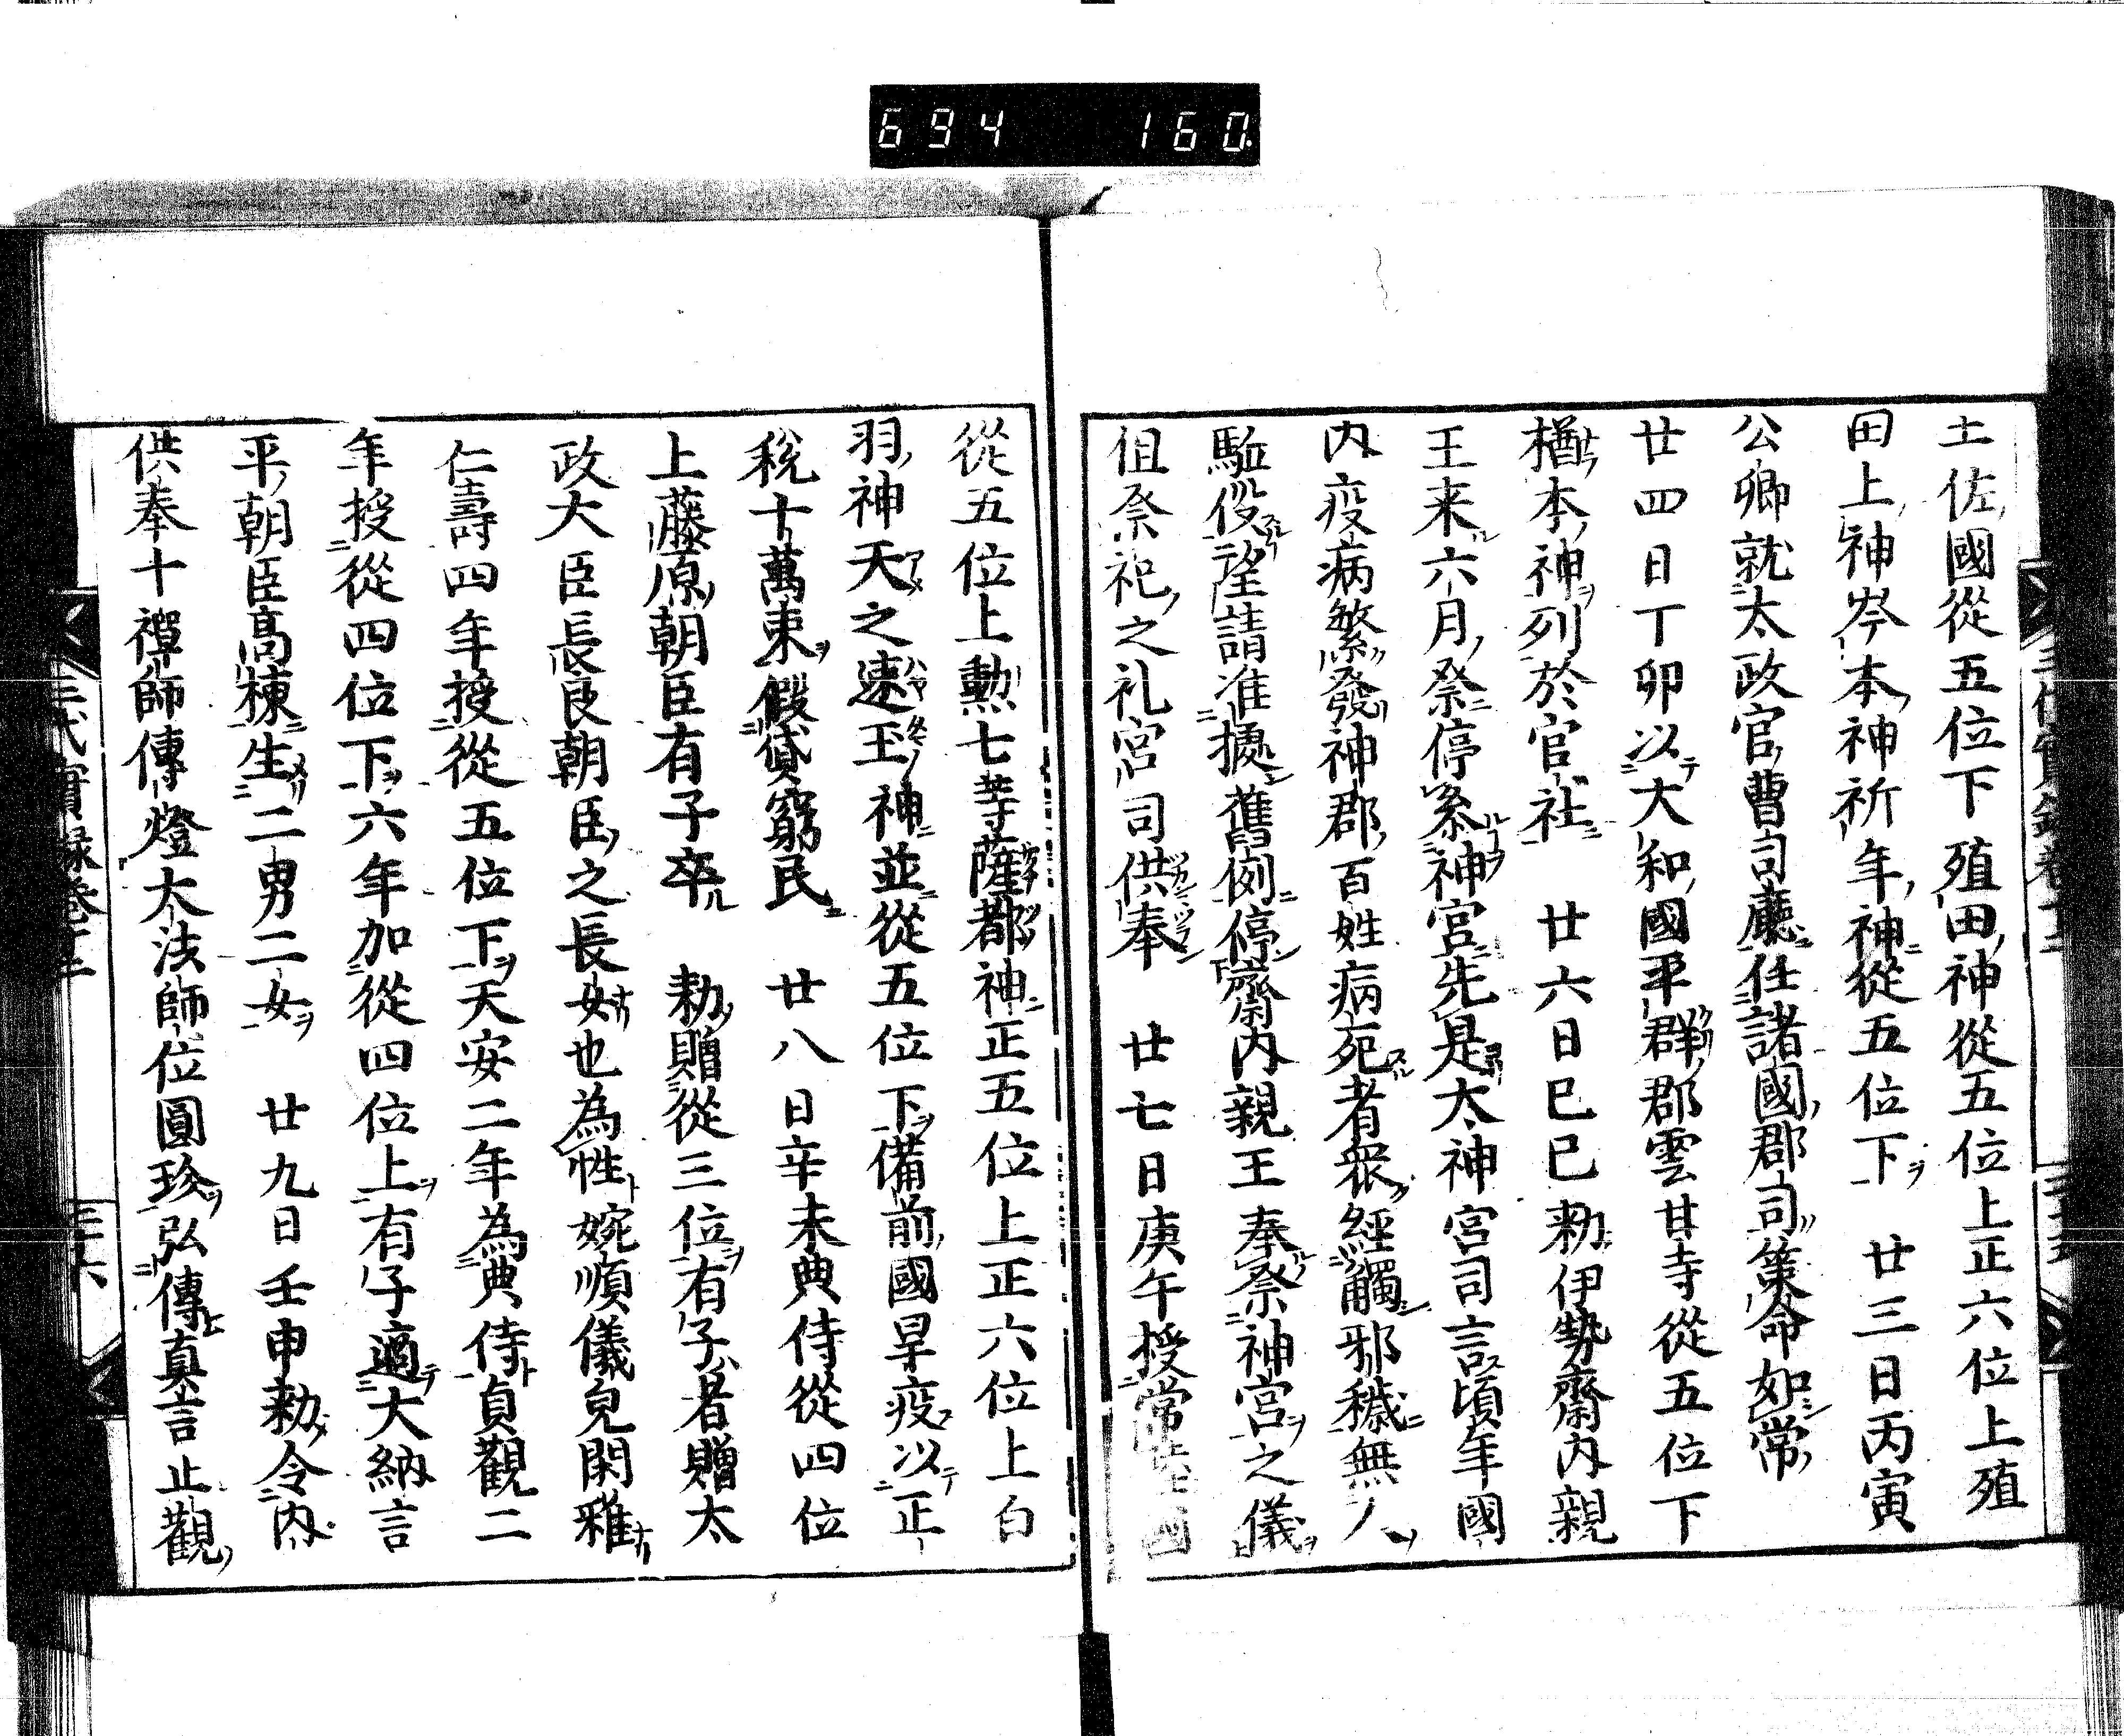 694 160
土佐國從五位下殖田神從五位上正六位上殖
田上神岑本神祈年神從五位下 廿三日丙寅
公卿就太政官曹司廳任諸國郡司策命如常
廿四日丁卯以大和國平群郡雲甘寺從五位下
楢本神列於官社 廿六日巳巳勅伊勢齋内親
王来六月祭停參神宮先是太神宮司言頃年國
内疫病繁發神郡百姓病死者衆經觸邪穢無人
駈役望請准據舊例停齋内親王奉祭神宮之儀
但祭祀之礼宮司供奉 廿七日庚午授常陸國
從五位上勲七等薩都神正五位上正六位上白
羽神天之速玉神並從五位下備前國旱疫以正
税十萬束假貸窮民 廿八日辛未典侍從四位
上藤原朝臣有子卒 勅贈從三位有子者贈太
政大臣長良朝臣之長女也為性婉順儀皃閑雅
仁壽四年授從五位下天安二年為典侍貞觀二
年授從四位下六年加從四位上有子適大納言
平朝臣高棟生二男二女 廿九日壬申勅令内
供奉十禪師傳燈大法師位圓珍弘傳真言止觀
三代實録卷十三
三十六